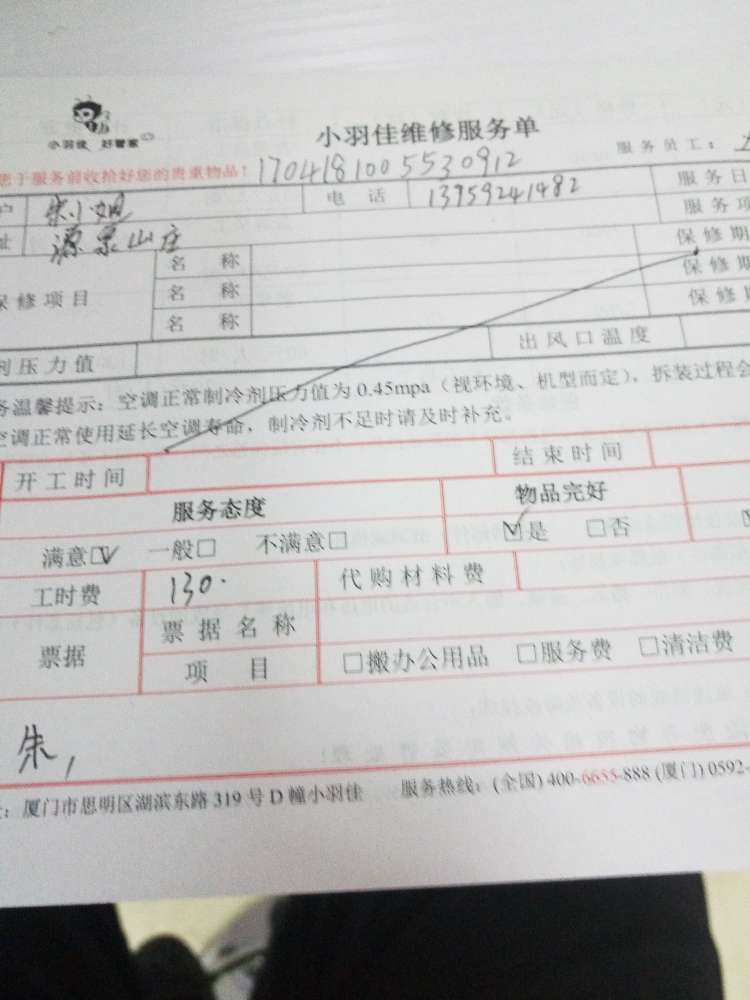 小羽佳 好管家
小羽佳维修服务单
服务员工：
您于服务前收拾好您的贵重物品！ 1704181005530912
户 朱小姐 电话 13959241482 服务日
址 源泉山庄 服务项
保修项目 名称 保修期
名称 保修期
名称 保修期
剂压力值 出风口温度
务温馨提示：空调正常制冷剂压力值为 0.45mpa（视环境、机型而定），拆装过程会
空调正常使用延长空调寿命，制冷剂不足时请及时补充。
开工时间 结束时间
服务态度 物品完好
满意☑ 一般□ 不满意□ ☑是 □否
工时费 130. 代购材料费
票据 票据名称
项目 □搬办公用品 □服务费 □清洁费
朱
：厦门市思明区湖滨东路 319 号 D 幢小羽佳 服务热线：(全国) 400-6655-888 (厦门) 0592-